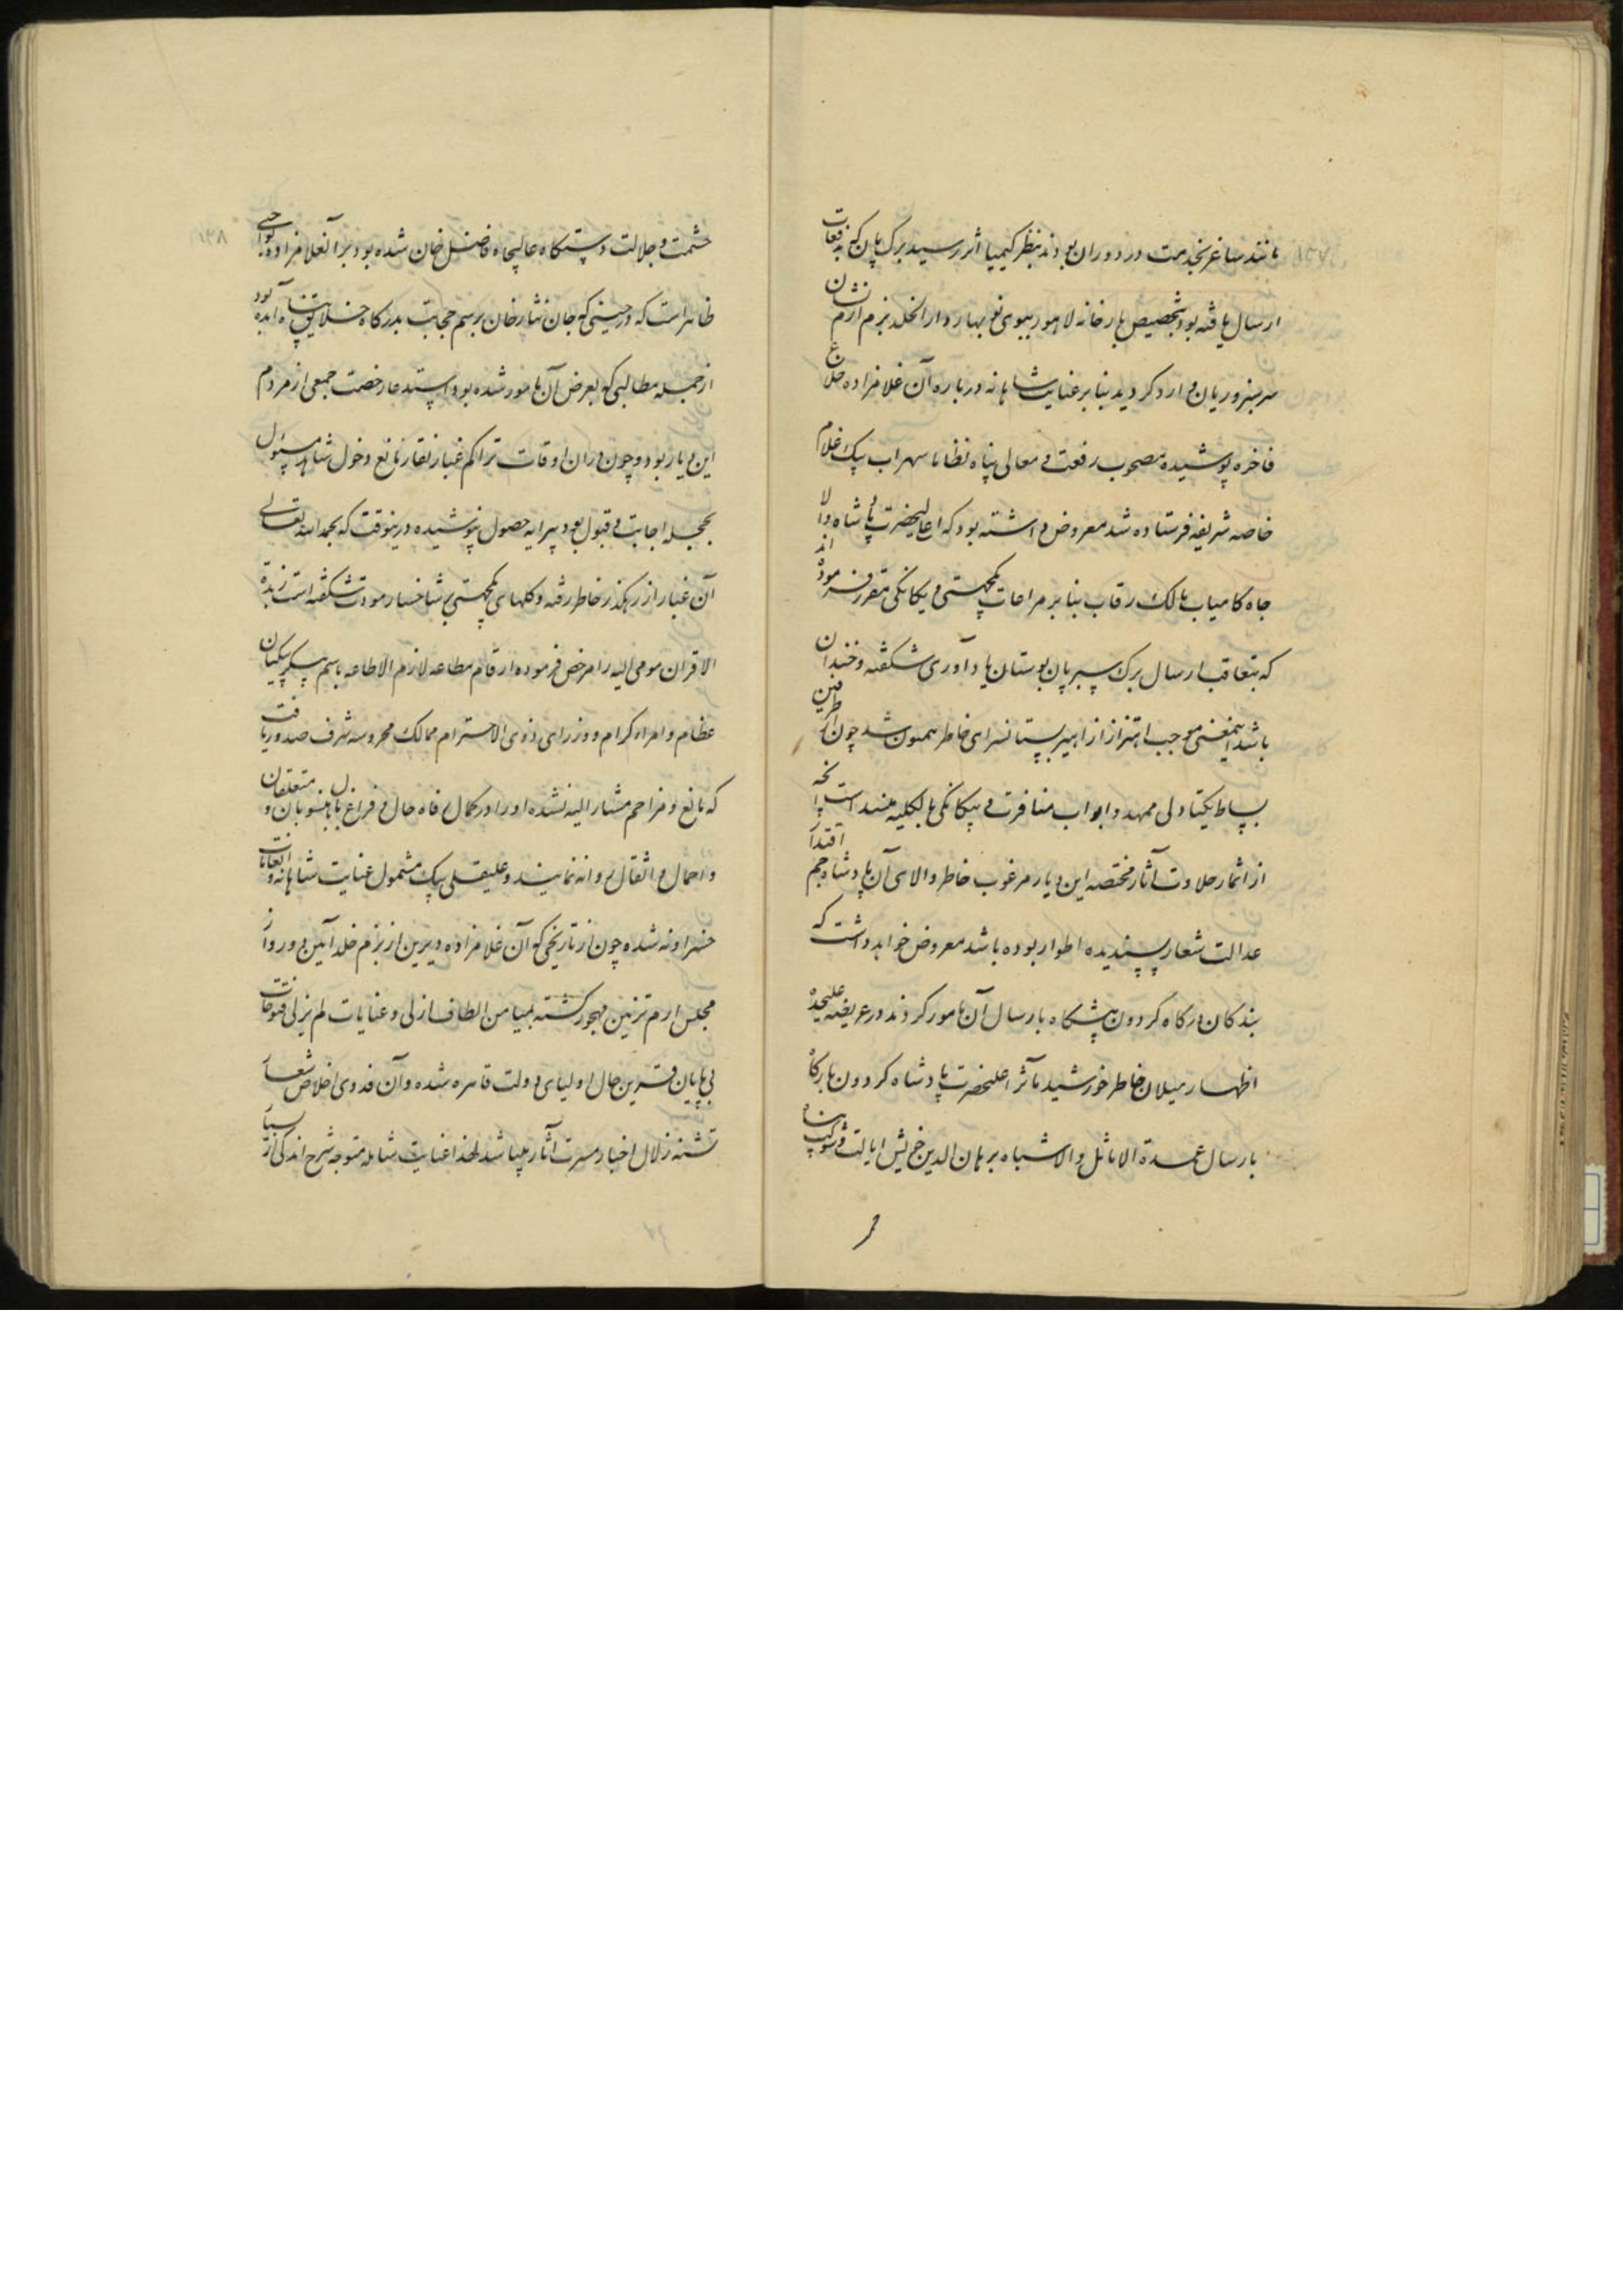 مانند ساغر بخدمت در دوران بودند بنظر کیمیا اثر رسید برک پان که بدفعات
ارسال یافته بود بتخصیص بارخانه لاهور ببوی نو بهار دار الخلد بزم ارم نشان
سرسبز و ریان وارد کردید بنا بر عنایت شاهانه درباره آن غلامزاده خلاع
فاخره پوشیده مصحوب رفعت و معالی پناه نظاما سهراب بیک غلام
خاصه شریفه فرستاده شد معروض داشته بود که اعلیحضرت پادشاه والا
جاه کامیاب مالک رقاب بنا بر مراعات یکجهتی و یکانکی مقرر فرموده اند
که بتعاقب ارسال برک سبز پان بوستان یاد آوری شکفته و خندان
باشد اینمعنی موجب اهتزاز ازاهیر بستانسرای خاطر همیون شد چون از طرفین
بساط یکتادلی ممهد و ابواب منافرت و بیکانکی بالکلیه منسد است آنچه
از اثمار حلاوت آثار مختصه این دیار مرغوب خاطر والای آن پادشاه جم اقتدار
عدالت شعار پسندیده اطوار بوده باشد معروض خواهد داشت که
بندکان درکاه کردون پیشکاه بارسال آن مامور کردند در عریضه علیحده
اظهار میلان خاطر خورشید مآثر اعلیحضرت پادشاه کردون بارکاه
بارسال عمدة الاماثل و الاشباه برهان الدین خویش ایالت و شوکت پناه
حشمت و جلالت دستکاه عالیجاه فاضل خان شده بود بر آنغلامزاده بواجبی
ظاهر است که در حینی که جان نثار خان برسم حجابت بدرکاه خلایق پناه آمده بود
از جمله مطالبی که بعرض آن مامور شده بود استدعا رخصت جمعی از مردم
این دیار بود و چون در ان اوقات تراکم غبار نقار مانع دخول شاهد مسئول
بحجله اجابت و قبول بود پیرایه حصول نپوشیده درینوقت که بحمد الله تعالی
آن غبار از رهکذر خاطر رفته و کلهای یکجهتی بر شاخسار مودت شکفته است زبدة
الاقران مومی الیه را مرخص فرموده ارقام مطاعه لازم الاطاعه باسم بیکلربیکیان
عظام و امراء کرام و وزرای ذوی الاحترام ممالک محروسه شرف صدور یافت
که مانع و مزاحم مشار الیه نشده او را در کمال رفاه حال و فراغ بال با منسوبان و متعلقان
و احمال و اثقال روانه نمایند و علیقلی بیک مشمول عنایت شاهانه و التفات
خسراونه شده چون از تاریخی که آن غلامزاده دیرین از بزم خلد آیین دور و از
مجلس ارم تزیین مهجور کشته بمیامن الطاف ازلی و عنایات لم یزلی فتوحات
بی پایان قرین حال اولیای دولت قاهره شده و آن فدوی اخلاص شعار
تشنه زلال اخبار مسرت آثار میباشد لهذا عنایت شامله متوجه شرح اندکی از
۱۳۸